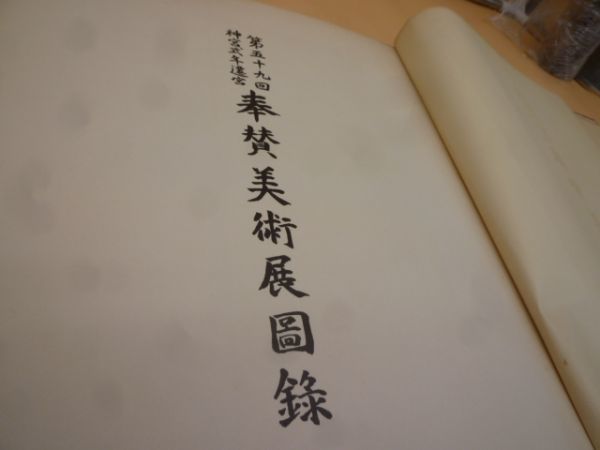 第五十九回
神宮式年遷宮
奉賛美術展圖錄